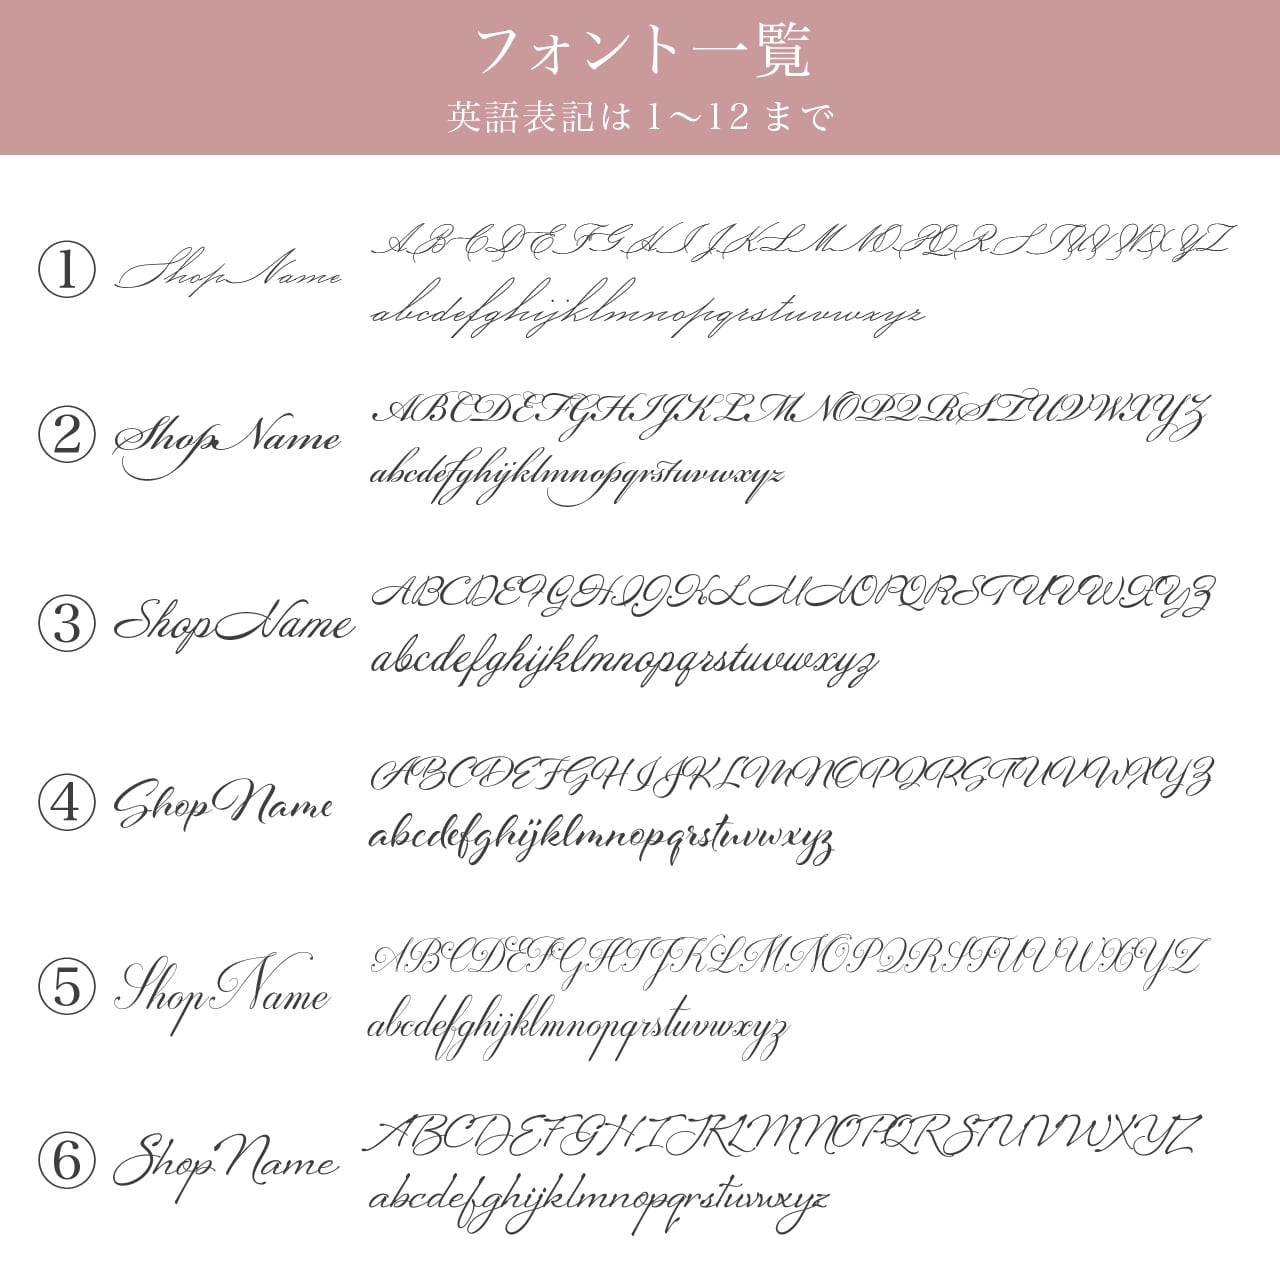 フォント一覧
英語表記は1〜12まで
① ShopName
ABCDEFGHIJKLMNOPQRSTUVWXYZ
abcdefghijklmnopqrstuvwxyz
② ShopName
ABCDEFGHIJKLMNOPQRSTUVWXYZ
abcdefghijklmnopqrstuvwxyz
③ ShopName
ABCDEFGHIJKLMNOPQRSTUVWXYZ
abcdefghijklmnopqrstuvwxyz
④ ShopName
ABCDEFGHIJKLMNOPQRSTUVWXYZ
abcdefghijklmnopqrstuvwxyz
⑤ ShopName
ABCDEFGHIJKLMNOPQRSTUVWXYZ
abcdefghijklmnopqrstuvwxyz
⑥ ShopName
ABCDEFGHIJKLMNOPQRSTUVWXYZ
abcdefghijklmnopqrstuvwxyz